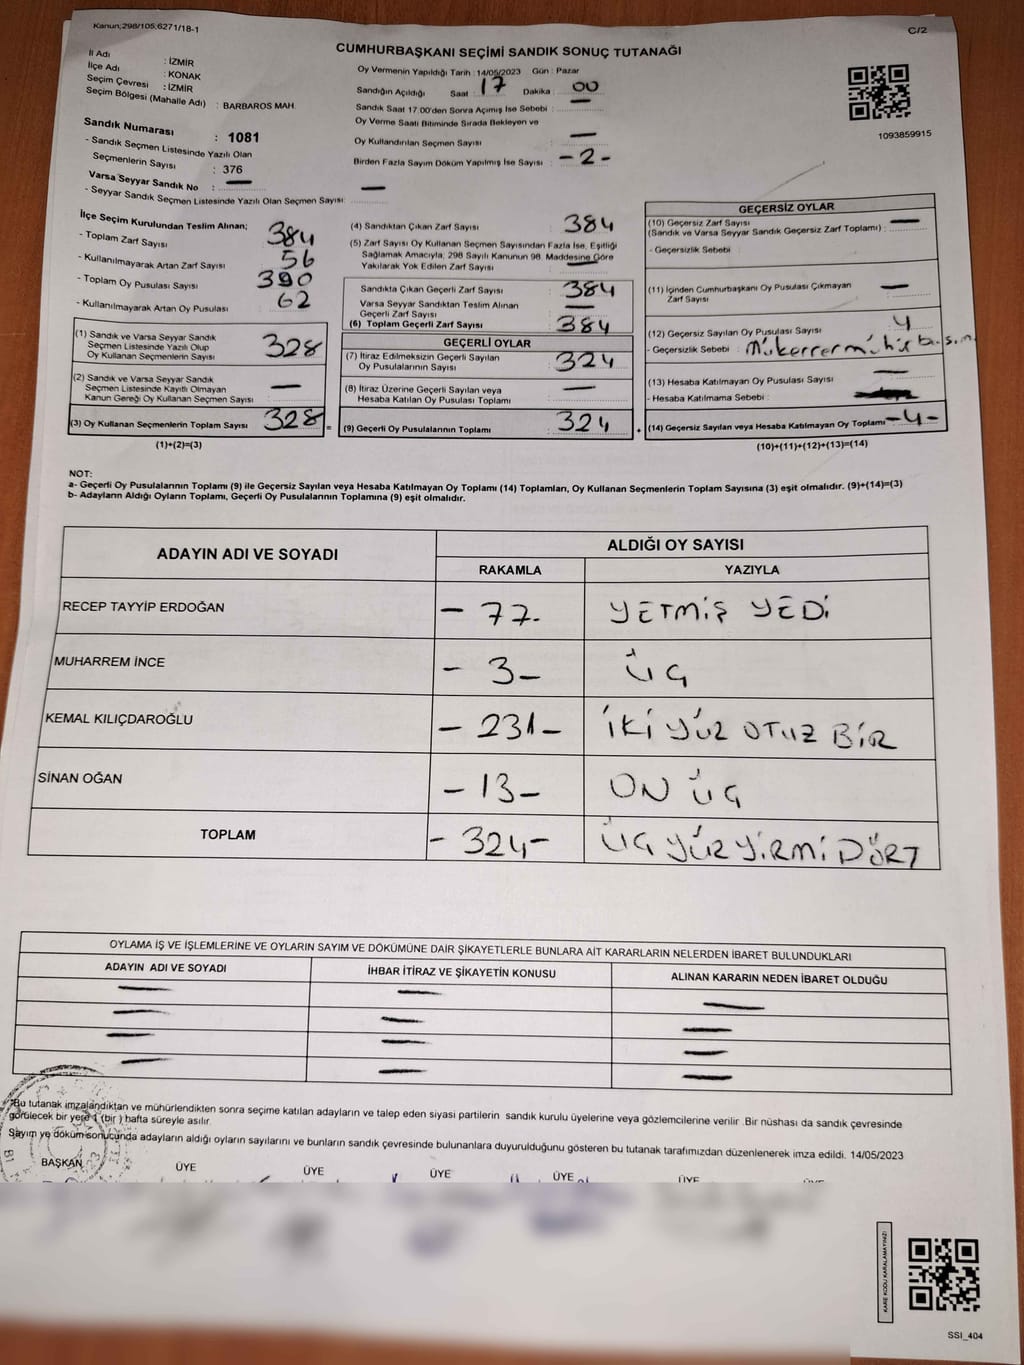 Kanun;298/105;6271/18-1
C/2
CUMHURBAŞKANI SEÇİMİ SANDIK SONUÇ TUTANAĞI
İl Adı : İZMİR
İlçe Adı : KONAK
Seçim Çevresi : İZMİR
Seçim Bölgesi (Mahalle Adı) : BARBAROS MAH.
Sandık Numarası : 1081
- Sandık Seçmen Listesinde Yazılı Olan
Seçmenlerin Sayısı : 376
Varsa Seyyar Sandık No :
- Seyyar Sandık Seçmen Listesinde Yazılı Olan Seçmen Sayısı:
Oy Vermenin Yapıldığı Tarih : 14/05/2023 Gün : Pazar
Sandığın Açıldığı Saat : 17 Dakika : 00
Sandık Saat 17.00'den Sonra Açımış İse Sebebi :
Oy Verme Saati Bitiminde Sırada Bekleyen ve
Oy Kullandırılan Seçmen Sayısı :
Birden Fazla Sayım Döküm Yapılmış İse Sayısı : -2-
1093859915
İlçe Seçim Kurulundan Teslim Alınan;
- Toplam Zarf Sayısı : 384
- Kullanılmayarak Artan Zarf Sayısı : 56
- Toplam Oy Pusulası Sayısı : 390
- Kullanılmayarak Artan Oy Pusulası : 62
(1) Sandık ve Varsa Seyyar Sandık
Seçmen Listesinde Yazılı Olup
Oy Kullanan Seçmenlerin Sayısı : 328
(2) Sandık ve Varsa Seyyar Sandık
Seçmen Listesinde Kayıtlı Olmayan
Kanun Gereği Oy Kullanan Seçmen Sayısı :
(3) Oy Kullanan Seçmenlerin Toplam Sayısı : 328 =
(1)+(2)=(3)
(4) Sandıktan Çıkan Zarf Sayısı : 384
(5) Zarf Sayısı Oy Kullanan Seçmen Sayısından Fazla İse, Eşitliği
Sağlamak Amacıyla, 298 Sayılı Kanunun 98. Maddesine Göre
Yakılarak Yok Edilen Zarf Sayısı :
Sandıkta Çıkan Geçerli Zarf Sayısı : 384
Varsa Seyyar Sandıktan Teslim Alınan
Geçerli Zarf Sayısı :
(6) Toplam Geçerli Zarf Sayısı : 384
GEÇERLİ OYLAR
(7) İtiraz Edilmeksizin Geçerli Sayılan
Oy Pusulalarının Sayısı : 324
(8) İtiraz Üzerine Geçerli Sayılan veya
Hesaba Katılan Oy Pusulası Toplamı :
(9) Geçerli Oy Pusulalarının Toplamı : 324 +
GEÇERSİZ OYLAR
(10) Geçersiz Zarf Sayısı
(Sandık ve Varsa Seyyar Sandık Geçersiz Zarf Toplamı) :
- Geçersizlik Sebebi :
(11) İçinden Cumhurbaşkanı Oy Pusulası Çıkmayan
Zarf Sayısı :
(12) Geçersiz Sayılan Oy Pusulası Sayısı : 4
- Geçersizlik Sebebi : Mükerrer mühür basım
(13) Hesaba Katılmayan Oy Pusulası Sayısı :
- Hesaba Katılmama Sebebi :
(14) Geçersiz Sayılan veya Hesaba Katılmayan Oy Toplamı : -4-
(10)+(11)+(12)+(13)=(14)
NOT:
a- Geçerli Oy Pusulalarının Toplamı (9) ile Geçersiz Sayılan veya Hesaba Katılmayan Oy Toplamı (14) Toplamları, Oy Kullanan Seçmenlerin Toplam Sayısına (3) eşit olmalıdır. (9)+(14)=(3)
b- Adayların Aldığı Oyların Toplamı, Geçerli Oy Pusulalarının Toplamına (9) eşit olmalıdır.
ADAYIN ADI VE SOYADI
ALDIĞI OY SAYISI
RAKAMLA YAZIYLA
RECEP TAYYİP ERDOĞAN - 77- YETMİŞ YEDİ
MUHARREM İNCE - 3- ÜÇ
KEMAL KILIÇDAROĞLU - 231- İKİ YÜZ OTUZ BİR
SİNAN OĞAN - 13- ON ÜÇ
TOPLAM - 324- ÜÇ YÜZ YİRMİ DÖRT
OYLAMA İŞ VE İŞLEMLERİNE VE OYLARIN SAYIM VE DÖKÜMÜNE DAİR ŞİKAYETLERLE BUNLARA AİT KARARLARIN NELERDEN İBARET BULUNDUKLARI
ADAYIN ADI VE SOYADI İHBAR İTİRAZ VE ŞİKAYETİN KONUSU ALINAN KARARIN NEDEN İBARET OLDUĞU
*Bu tutanak imzalandıktan ve mühürlendikten sonra seçime katılan adayların ve talep eden siyasi partilerin sandık kurulu üyelerine veya gözlemcilerine verilir. Bir nüshası da sandık çevresinde
görülecek bir yere 1 (bir ) hafta süreyle asılır.
Sayım ve döküm sonucunda adayların aldığı oyların sayılarını ve bunların sandık çevresinde bulunanlara duyurulduğunu gösteren bu tutanak tarafımızdan düzenlenerek imza edildi. 14/05/2023
BAŞKAN ÜYE ÜYE ÜYE ÜYE ÜYE
KARE KODU KARALAMAYINIZ!
SSI_404